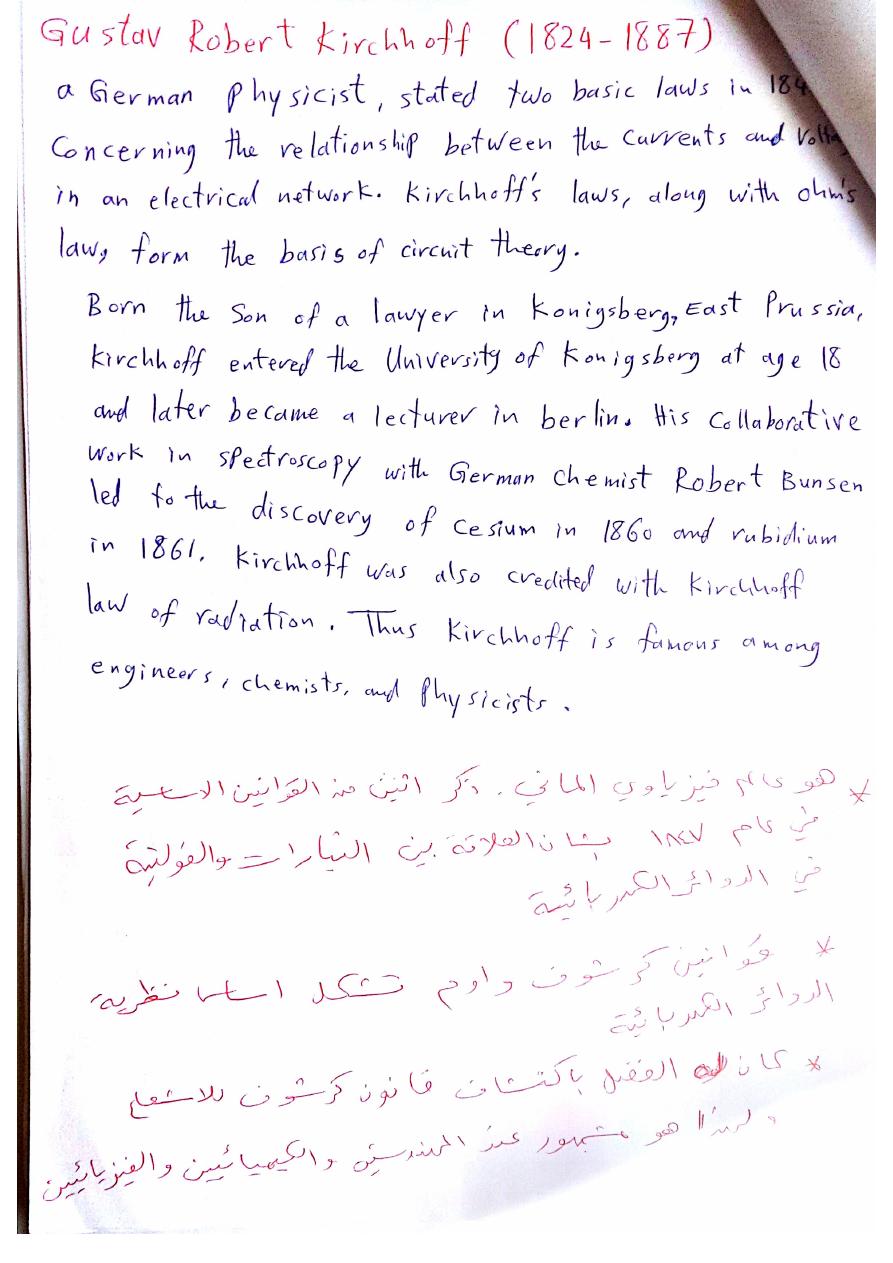 Gustav Robert Kirchhoff (1824-1887)
a German physicist, stated two basic laws in 184
Concerning the relationship between the currents and Volta
in an electrical network. Kirchhoff's laws, along with ohm's
law, form the basis of circuit theory.
Born the Son of a lawyer in Konigsberg, East Prussia,
Kirchhoff entered the University of Konigsberg at age 18
and later became a lecturer in berlin. His Collaborative
Work in spectroscopy with German chemist Robert Bunsen
led to the discovery of cesium in 1860 and rubidium
in 1861. Kirchhoff was also credited with Kirchhoff
law of radiation. Thus Kirchhoff is famous among
engineers, chemists, and physicists.
* هو عالم فيزياوي الماني. ذكر اثنين من القوانين الاساسية
في عام ١٨٤٧ بشان العلاقة بين التيارات والفولتية
في الدوائر الكهربائية
* قوانين كرشوف واوم تشكل اساسا نظرية
الدوائر الكهربائية
* كان له الفضل باكتشاف قانون كرشوف للاشعاع
ولهذا هو مشهور عند المهندسين والكيميائيين والفيزيائيين